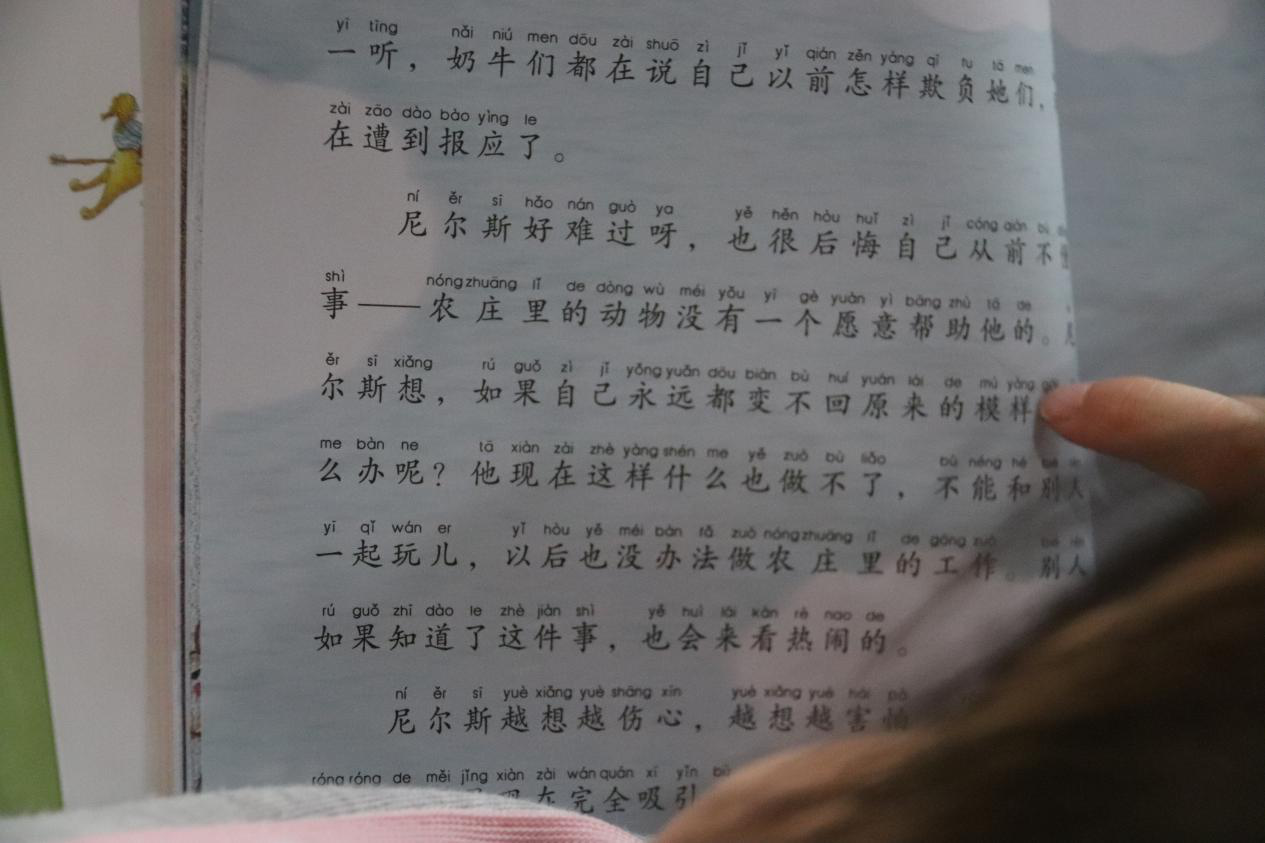 yī tīng nǎi niú men dōu zài shuō zì jǐ yǐ qián zěn yàng qī fu tā men
一听，奶牛们都在说自己以前怎样欺负她们，
zài zāo dào bào yìng le
在遭到报应了。
ní ěr sī hǎo nán guò ya yě hěn hòu huǐ zì jǐ cóng qián bù
尼尔斯好难过呀，也很后悔自己从前不
shì nóng zhuāng lǐ de dòng wù méi yǒu yī gè yuàn yì bāng zhù tā de
事——农庄里的动物没有一个愿意帮助他的。
ěr sī xiǎng rú guǒ zì jǐ yǒng yuǎn dōu biàn bù huí yuán lái de mú yàng
尔斯想，如果自己永远都变不回原来的模样
me bàn ne tā xiàn zài zhè yàng shén me yě zuò bù liǎo bù néng hé bié rén
么办呢？他现在这样什么也做不了，不能和别人
yī qǐ wán er yǐ hòu yě méi bàn fǎ zuò nóng zhuāng lǐ de gōng zuò bié rén
一起玩儿，以后也没办法做农庄里的工作。别人
rú guǒ zhī dào le zhè jiàn shì yě huì lái kàn rè nao de
如果知道了这件事，也会来看热闹的。
ní ěr sī yuè xiǎng yuè shāng xīn yuè xiǎng yuè hài pà
尼尔斯越想越伤心，越想越害怕
róng róng de měi jǐng xiàn zài wán quán xī yǐn bù
现在完全吸引